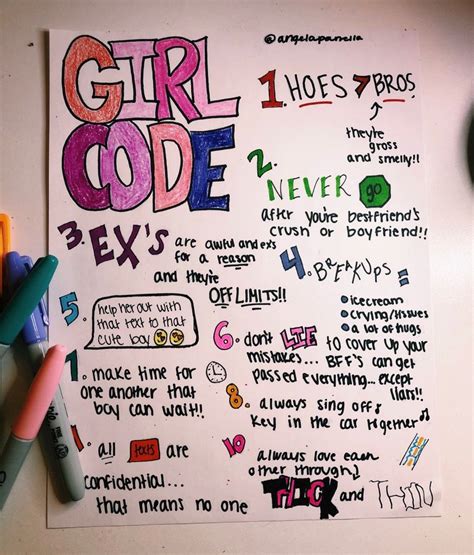 GIRL
CODE
@angelapanella
1. HOES > BROS
they're
gross
and smelly!!
2.
NEVER go
after you're bestfriend's
crush or boyfriend!!
3. EX'S are awful and exs
for a reason
and they're
OFF LIMITS!!
4. BREAKUPS:
icecream
crying/tissues
a lot of hugs
5. help her out with
that text to that
cute boy
6. don't LIE
to cover up your
mistakes... BFF's can get
passed everything... except
liars!!
7. make time for
one another that
boy can wait!!
8. always sing off
key in the car together
1. all texts are
confidential...
that means no one
10 always love each
other through
THICK and THIN